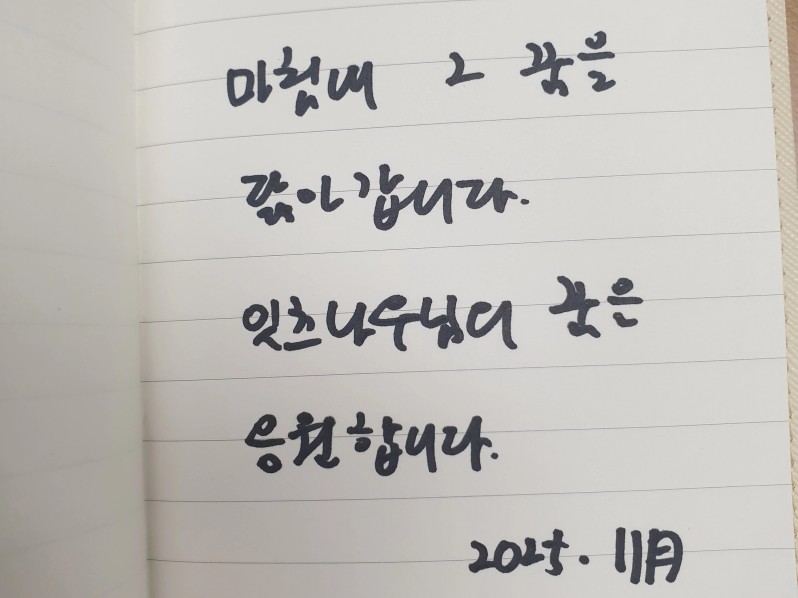 마침내 그 꿈을
닮아갑니다.
잇츠나우님의 꿈은
응원합니다.
2025. 11月